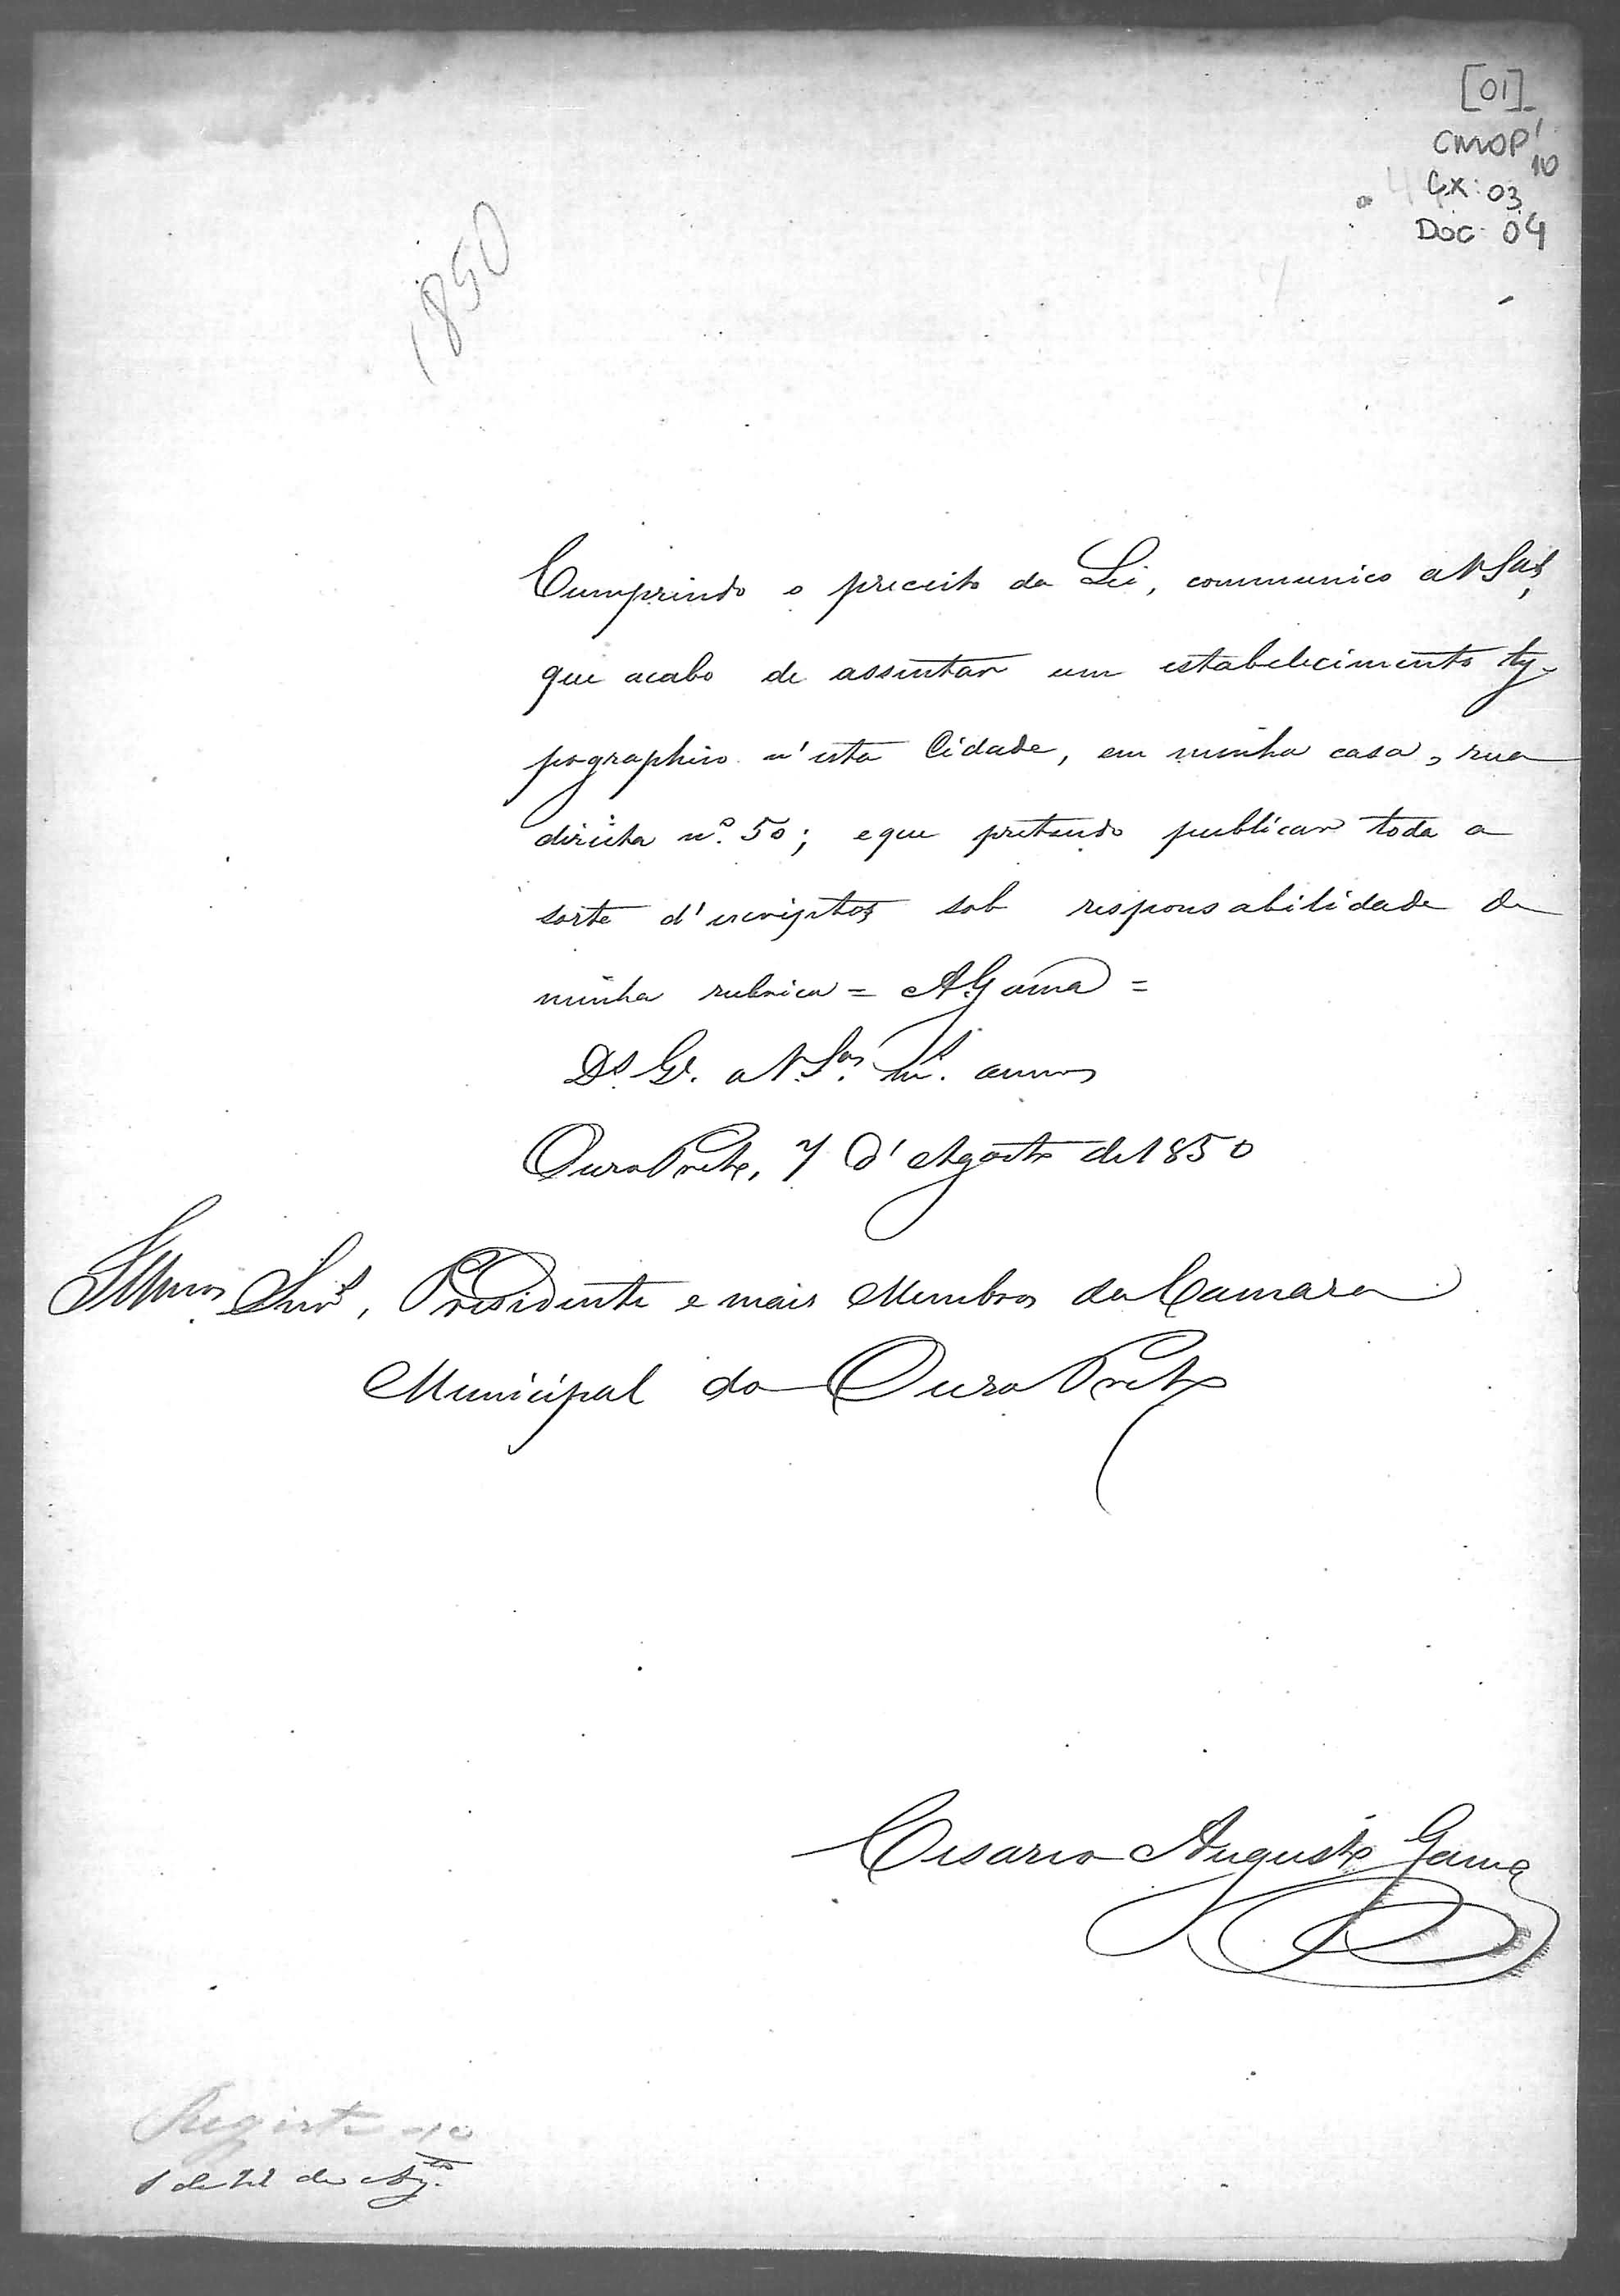 [01]
CMOP 1
10
Cx: 03
Doc 04
1850
Cumprindo o preceito da Lei, communico a V Sas,
que acabo de assentar um estabelecimento ty-
pographico n'esta Cidade, em minha casa, rua
direita nº. 50; e que pretendo publicar toda a
sorte d'escriptos sob responsabilidade de
minha rubrica = A.Gama =
Ds. Ge. a V. Sas. ms. annos
Ouro Preto, 7 d'Agosto de 1850
Illmos Snrs, Presidente e mais Membros da Camara
Municipal do Ouro Preto
Cesario Augusto Gama
Registe-se
de Agto.